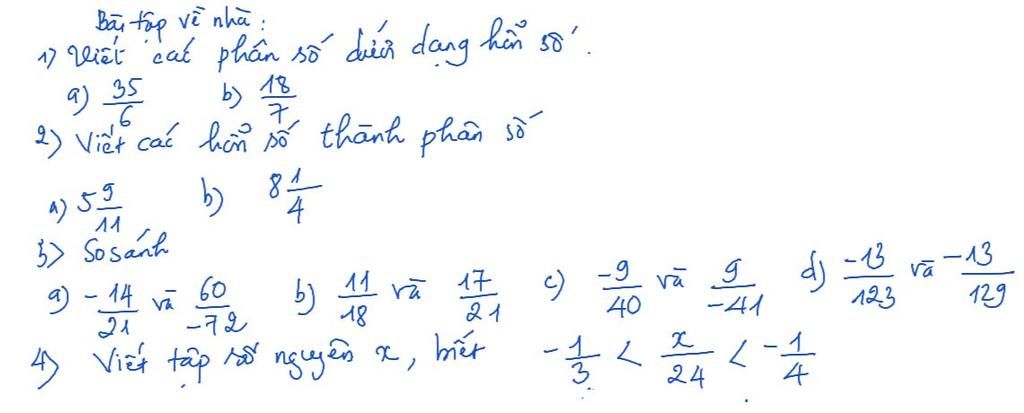 Bài tập về nhà:
1) Viết các phân số dưới dạng hỗn số.
a) 35/6 b) 18/7
2) Viết các hỗn số thành phân số
a) 5 9/11 b) 8 1/4
3) So sánh
a) -14/21 và 60/-72 b) 11/18 và 17/21 c) -9/40 và 9/-41 d) -13/123 và -13/129
4) Viết tập số nguyên x, biết -1/3 < x/24 < -1/4